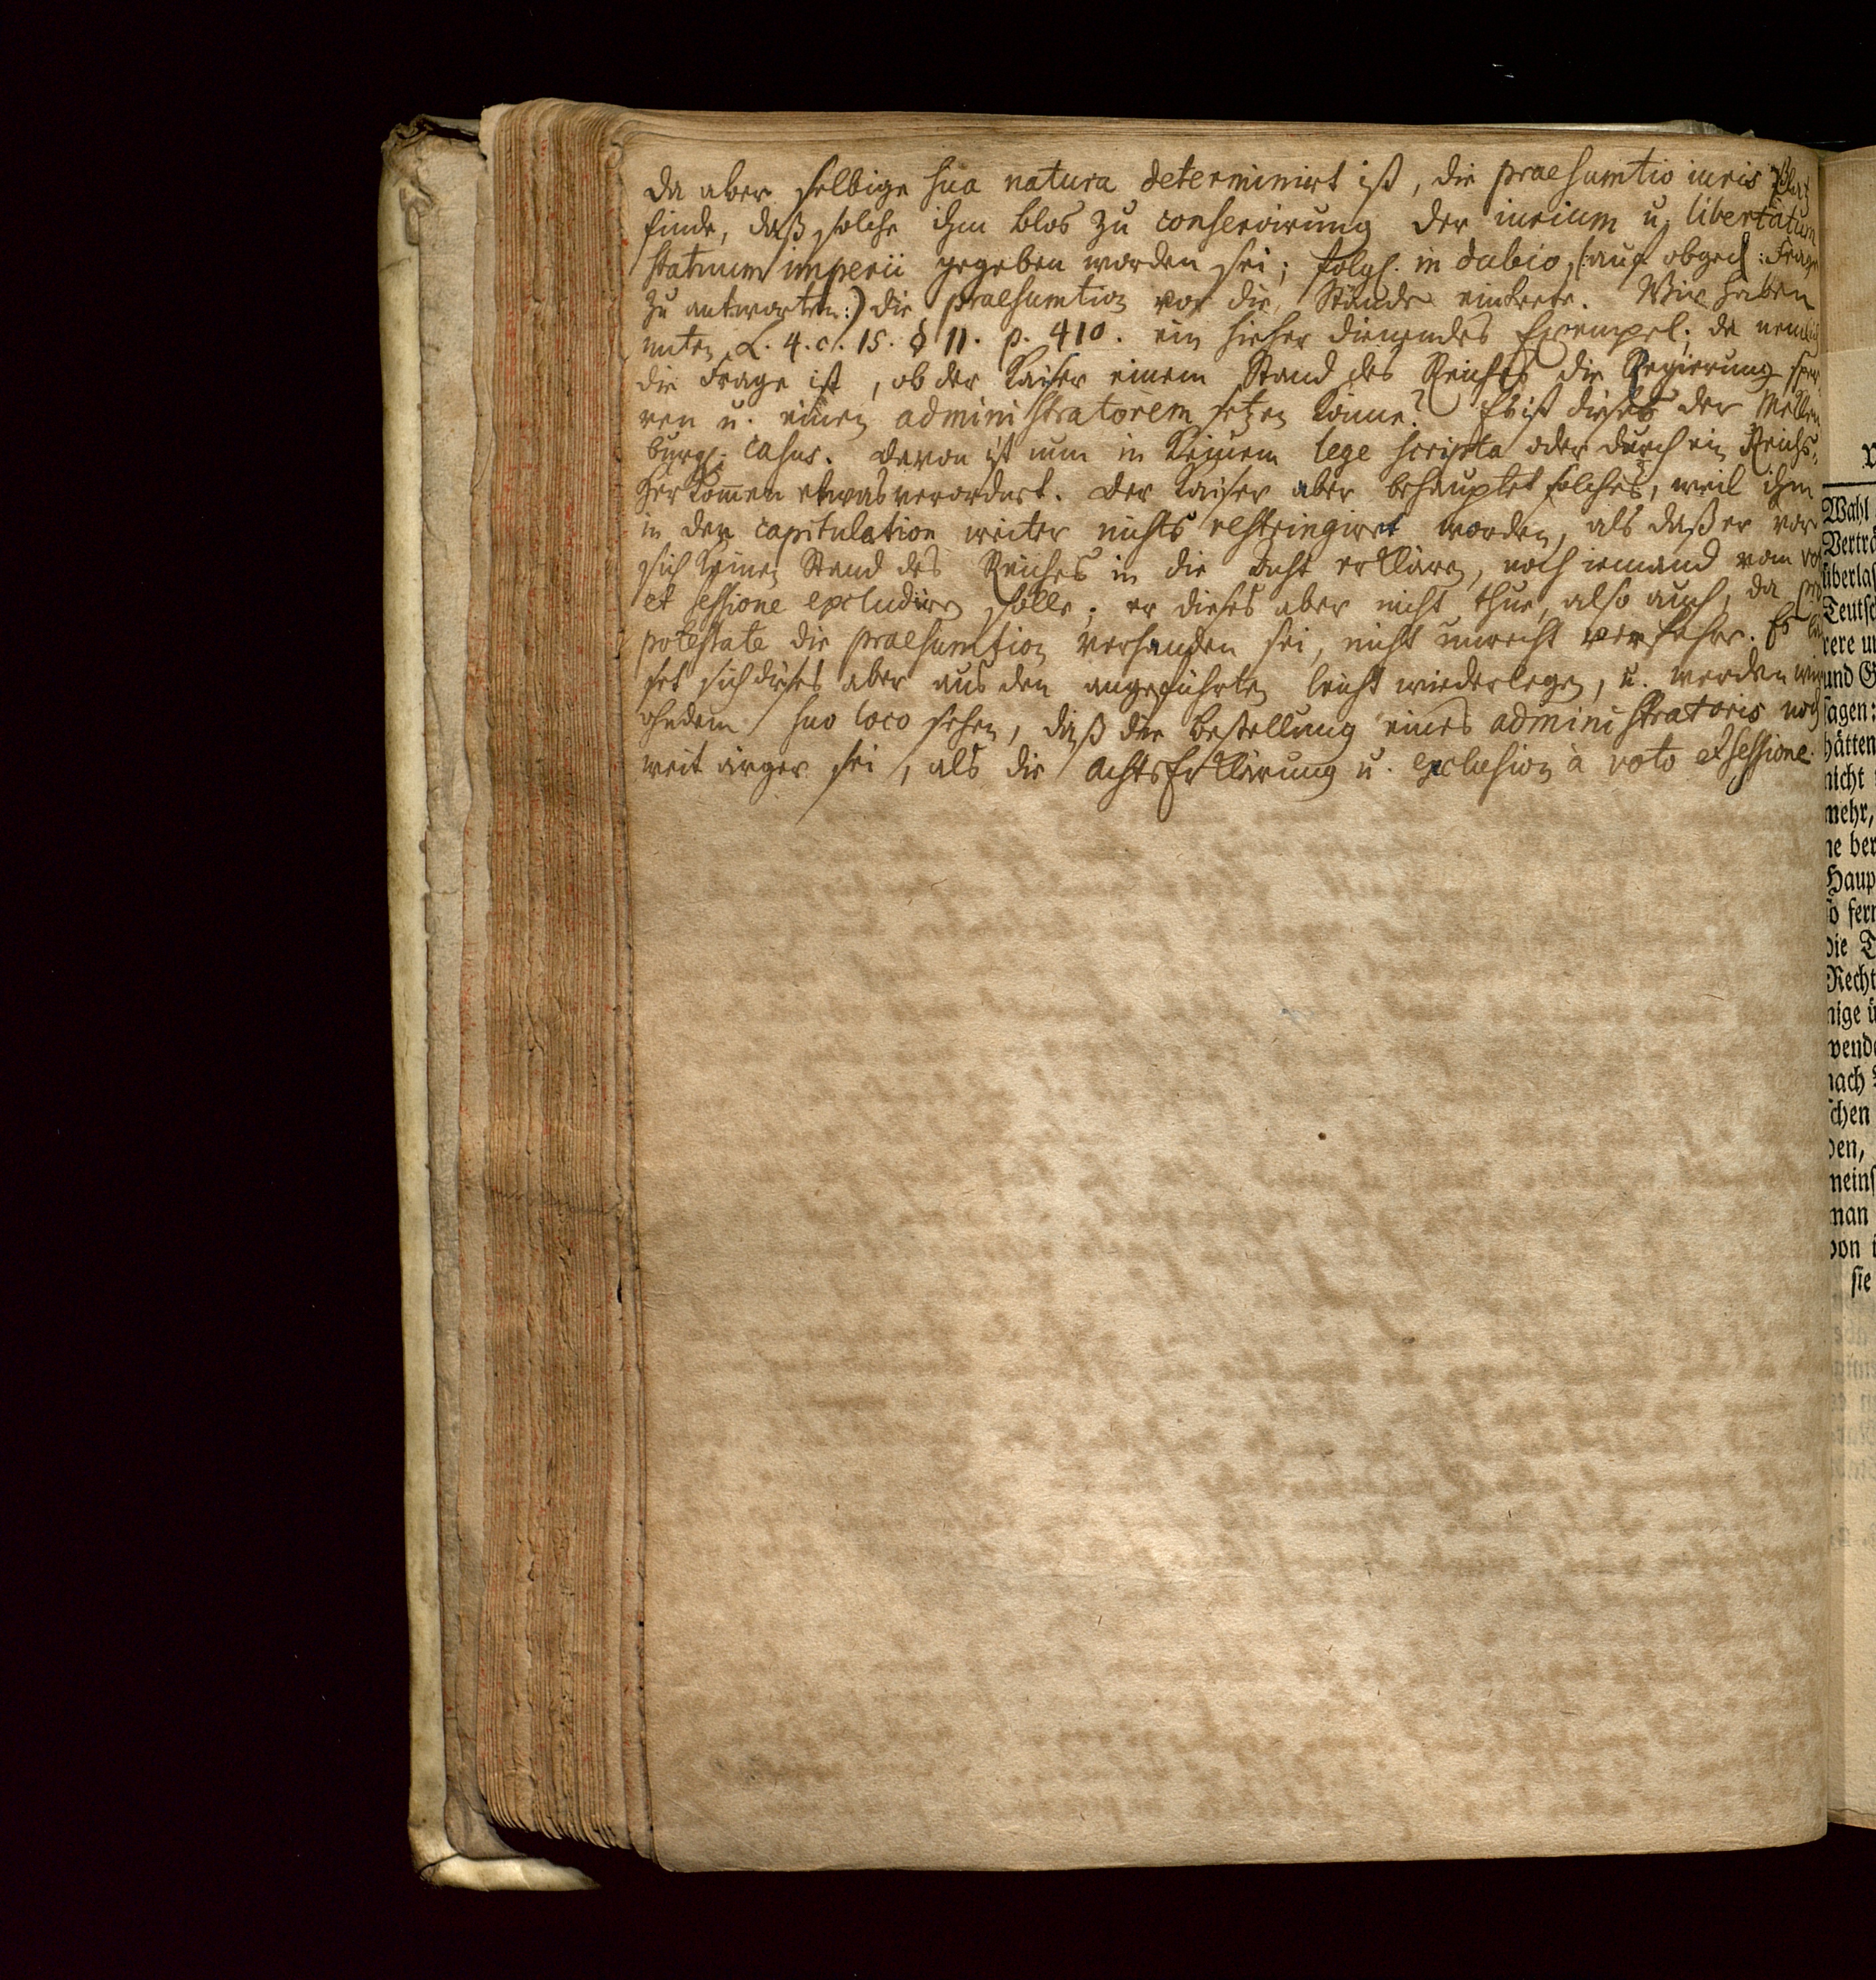 da aber selbige sua natura determinirt ist, die praesumtio iuris Platz
finde, daß solche ihm blos zu conservirung der iurium u. libertatum
statuum imperii gegeben worden sei; folgl. in dubio, (:auf obged: Frage
zu antworten:) die praesumtion vor die Stände eintrete. Wir haben
unten L. 4. c. 15. § 11. p. 410. ein hieher dienendes Exempel; da nemlich
die Frage ist, ob der Kaiser einem Stand des Reichs die Regierung sper
ren u. einen administratorem setzen könne? Es ist dieses der Meklen
burgl. casus. Davon ist nun in keinem lege scripta oder durch ein Reichs-
herkommen etwas verordnet. Der Kaiser aber behauptet solches, weil ihm
in der capitulation weiter nichts restringiret worden, als daß er vor
sich keinen Stand des Reiches in die Acht erklären, noch iemand vom vo
et sessione excludiren solle; er dieses aber nicht thue, also auch, da pro
potestate die praesumtion vorhanden sei, nicht unrecht verfahre. Es
set sich dieses aber aus den angeführten leicht wiederlegen, u. werden wir
ohndem suo loco sehen, daß die Bestellung eines administratoris noch
weit ärger sei, als die Achts Erklärung u. exclusion à voto et sessione.
Wahl
Vertr
überla
Teutsc
rere u
und G
sagen:
hätten
nicht
mehr,
ne ber
Haup
so fern
die T
Recht
nige ü
wend
nach
schen
den,
meins
man
von i
sie